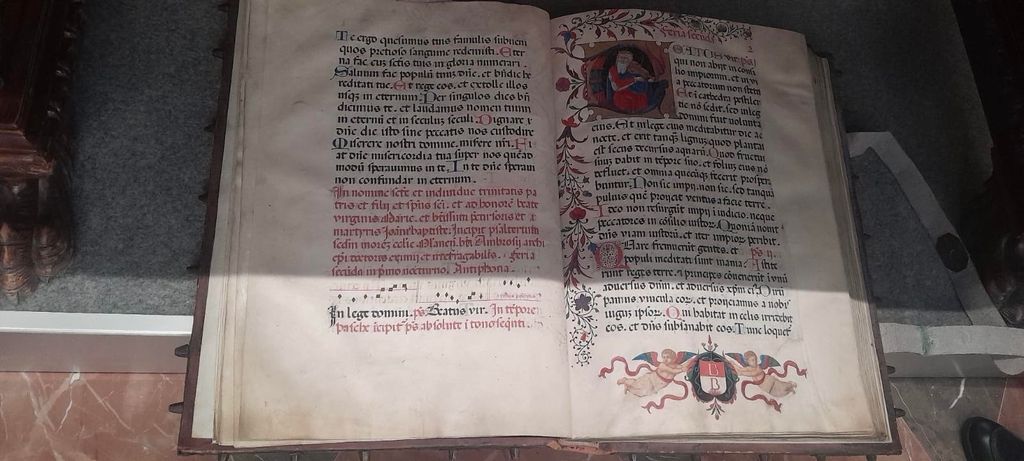 Te ergo quesumus tuis famulis subueni
quos pretioso sanguine redemisti. Eter
na fac cuz sctis tuis in gloria numerari.
Saluum fac populū tuuz dñe. et bñdic he
reditati tue. Et rege eos. et extolle illos
usqz in eternum. Per singulos dies bñ
dicimus te. et laudamus nomen tuum
in eternū et in seculuz seculi. Dignare
dñe die isto sine peccatis nos custodire
Miserere nostri domine. misere nr̄i. Fi
at dñe misericordia tua super nos quēad
modū sperauimus in te. In te dñe speraui
non confundar in eternum.
In nomine scte et indiuidue trinitatis pa
tris et filij et spūs sci. et ad honorē beate
virginis Marie. et
martyris Incipit psalterium
scdm morez eclie bti Ambrosij archi
epi doctoris eximij et Feria
secūda in pmo nocturno. Antiphona.
In lege domini. ps Beatus vir. In tēpore
pasche icipit ps absolute
Feria secūda
2
BEATUS vir
qui non abijt in consi
lio impiorum. et in via
peccatorum non stetit
Et i cathedra pestilen
tie nō sedit. Sed in lege
domini fuit voluntas
eius. Et in lege eius meditabitur die ac
nocte. et erit tanqz lignuz quod plantatuz
est secus decursus aquarū. Quod fructuz
suuz dabit in tēpore suo. et foliuz eius nō
defluet. et omnia quecūqz faciet prospera
buntur. Non sic impij. non sic. sed tanquā
puluis quē proicit ventus a facie terre.
Ideo non resurgūt impij i iudicio. neque
peccatores in cōsilio iustoɤ. Quoniā nouit
dñs viam iustorū. et iter impioɤ peribit.
Quare fremuerūt gentes. et ps ij.
populi meditati sunt inania. Astite
runt reges terre. et principes cōuenerūt ī unū
aduersus dñm. et aduersus xpm ei9. Dirū
pamus vincula eoɤ. et proijciamus a nobis
iugum ipsoɤ. Qui habitat in celis irridebit
eos. et dñs subsanabit eos. Tunc loquet
B
B